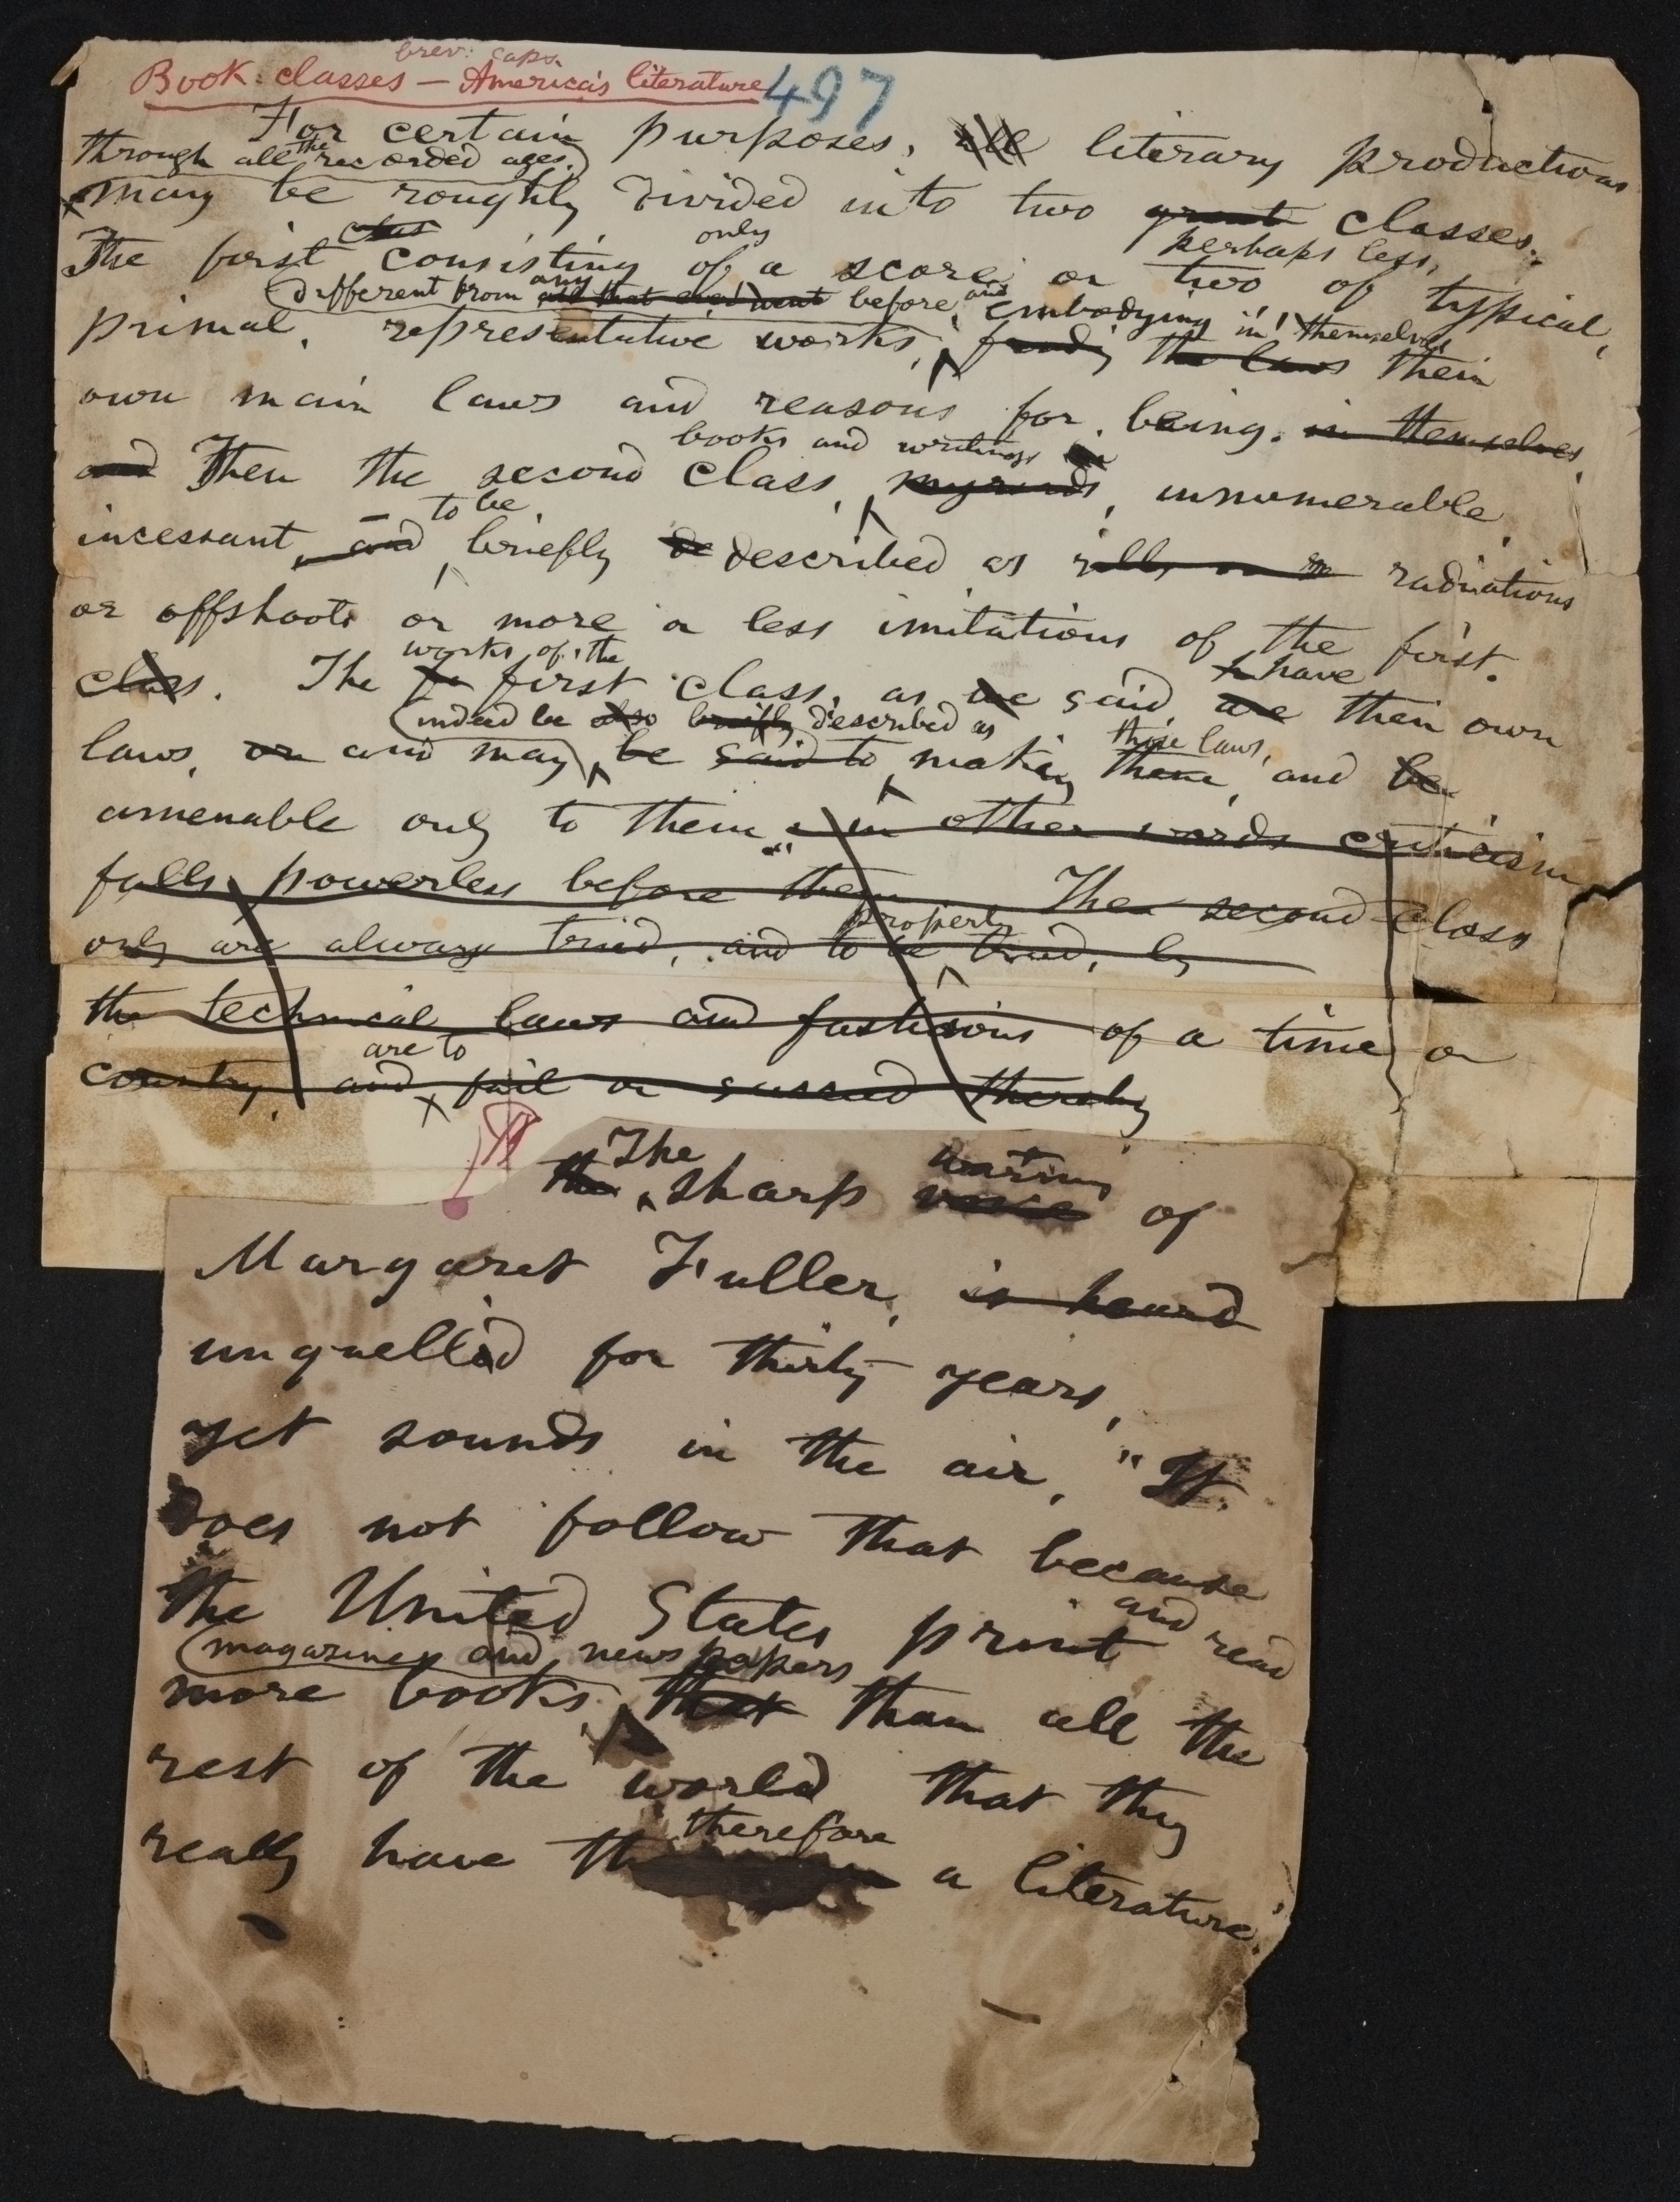 brev: caps.
Book-classes — America's literature 497
For certain purposes, all literary productions
through all the recorded ages,
may be roughly divided into two great classes.
class only perhaps less,
The first consisting of a score or two of typical,
different from any all that ever went before, and embodying in themselves
primal, representative works, the laws their
own main laws and reasons for being. in themselves,
books and writings
and Then the second class, myriads, innumerable,
to be
incessant, and briefly de described as rills or radiations
or offshoots or more or less imitations of the first.
works of the have
class. The first class, as we said are their own
indeed be also briefly described as those laws,
laws, or and may be said to making them, and be
amenable only to them. in other words criticism
falls powerless before them The second class
properly
only are always tried, and to be tried, by
the technical laws and fashions of a time or
are to
country, and fail or succeed thereby
The warning
the sharp voice of
Margaret Fuller, is heard
unquell'd for thirty years,
yet sounds in the air, "It
does not follow that because
and
the United States print read
magazines and newspapers
more books, that than all the
rest of the world that they
therefore
really have a literature.